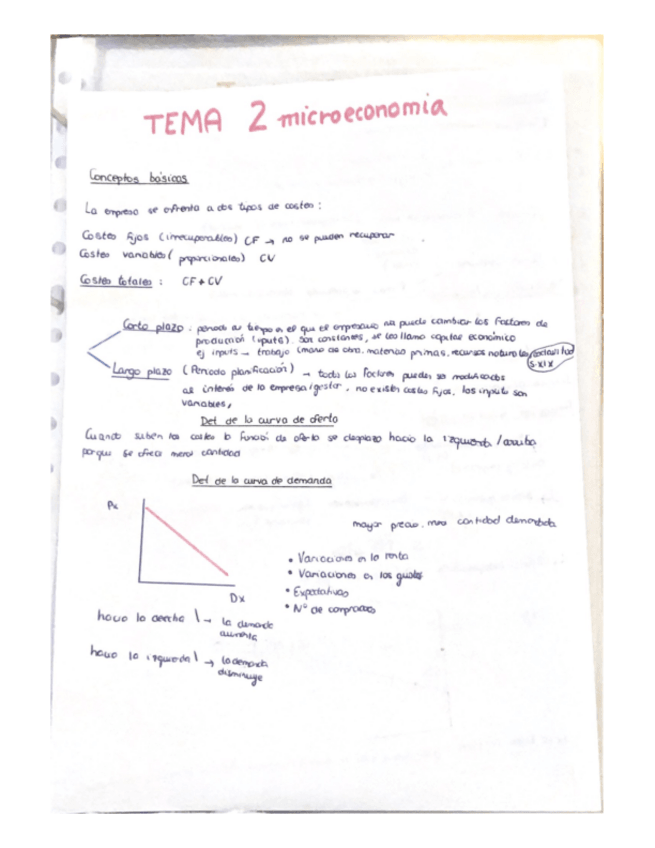 TEMA 2 microeconomia
Conceptos básicos
La empresa se enfrenta a dos tipos de costes:
Costes fijos (irrecuperables) CF → no se pueden recuperar
Costes variables (proporcionales) CV
Costes totales: CF + CV
Corto plazo: periodo de tiempo en el que el empresario no puede cambiar los factores de
producción (inputs). Son constantes, se les llama capital económico
ej inputs → trabajo (mano de obra, materias primas, recursos naturales
S.XIX
Largo plazo (Periodo planificación) → todos los factores pueden ser modificados
al interés de la empresa/gestor, no existen costes fijos, los inputs son
variables,
Def de la curva de oferta
Cuando suben los costes la función de oferta se desplaza hacia la izquierda/arriba
porque se ofrece menor cantidad
Def de la curva de demanda
Px
mayor precio, cantidad demandada
• Variaciones en la renta
• Variaciones en los gustos
• Expectativas
• Nº de compradores
Dx
hacia la derecha \ → la demanda
aumenta
hacia la izquierda \ → la demanda
disminuye